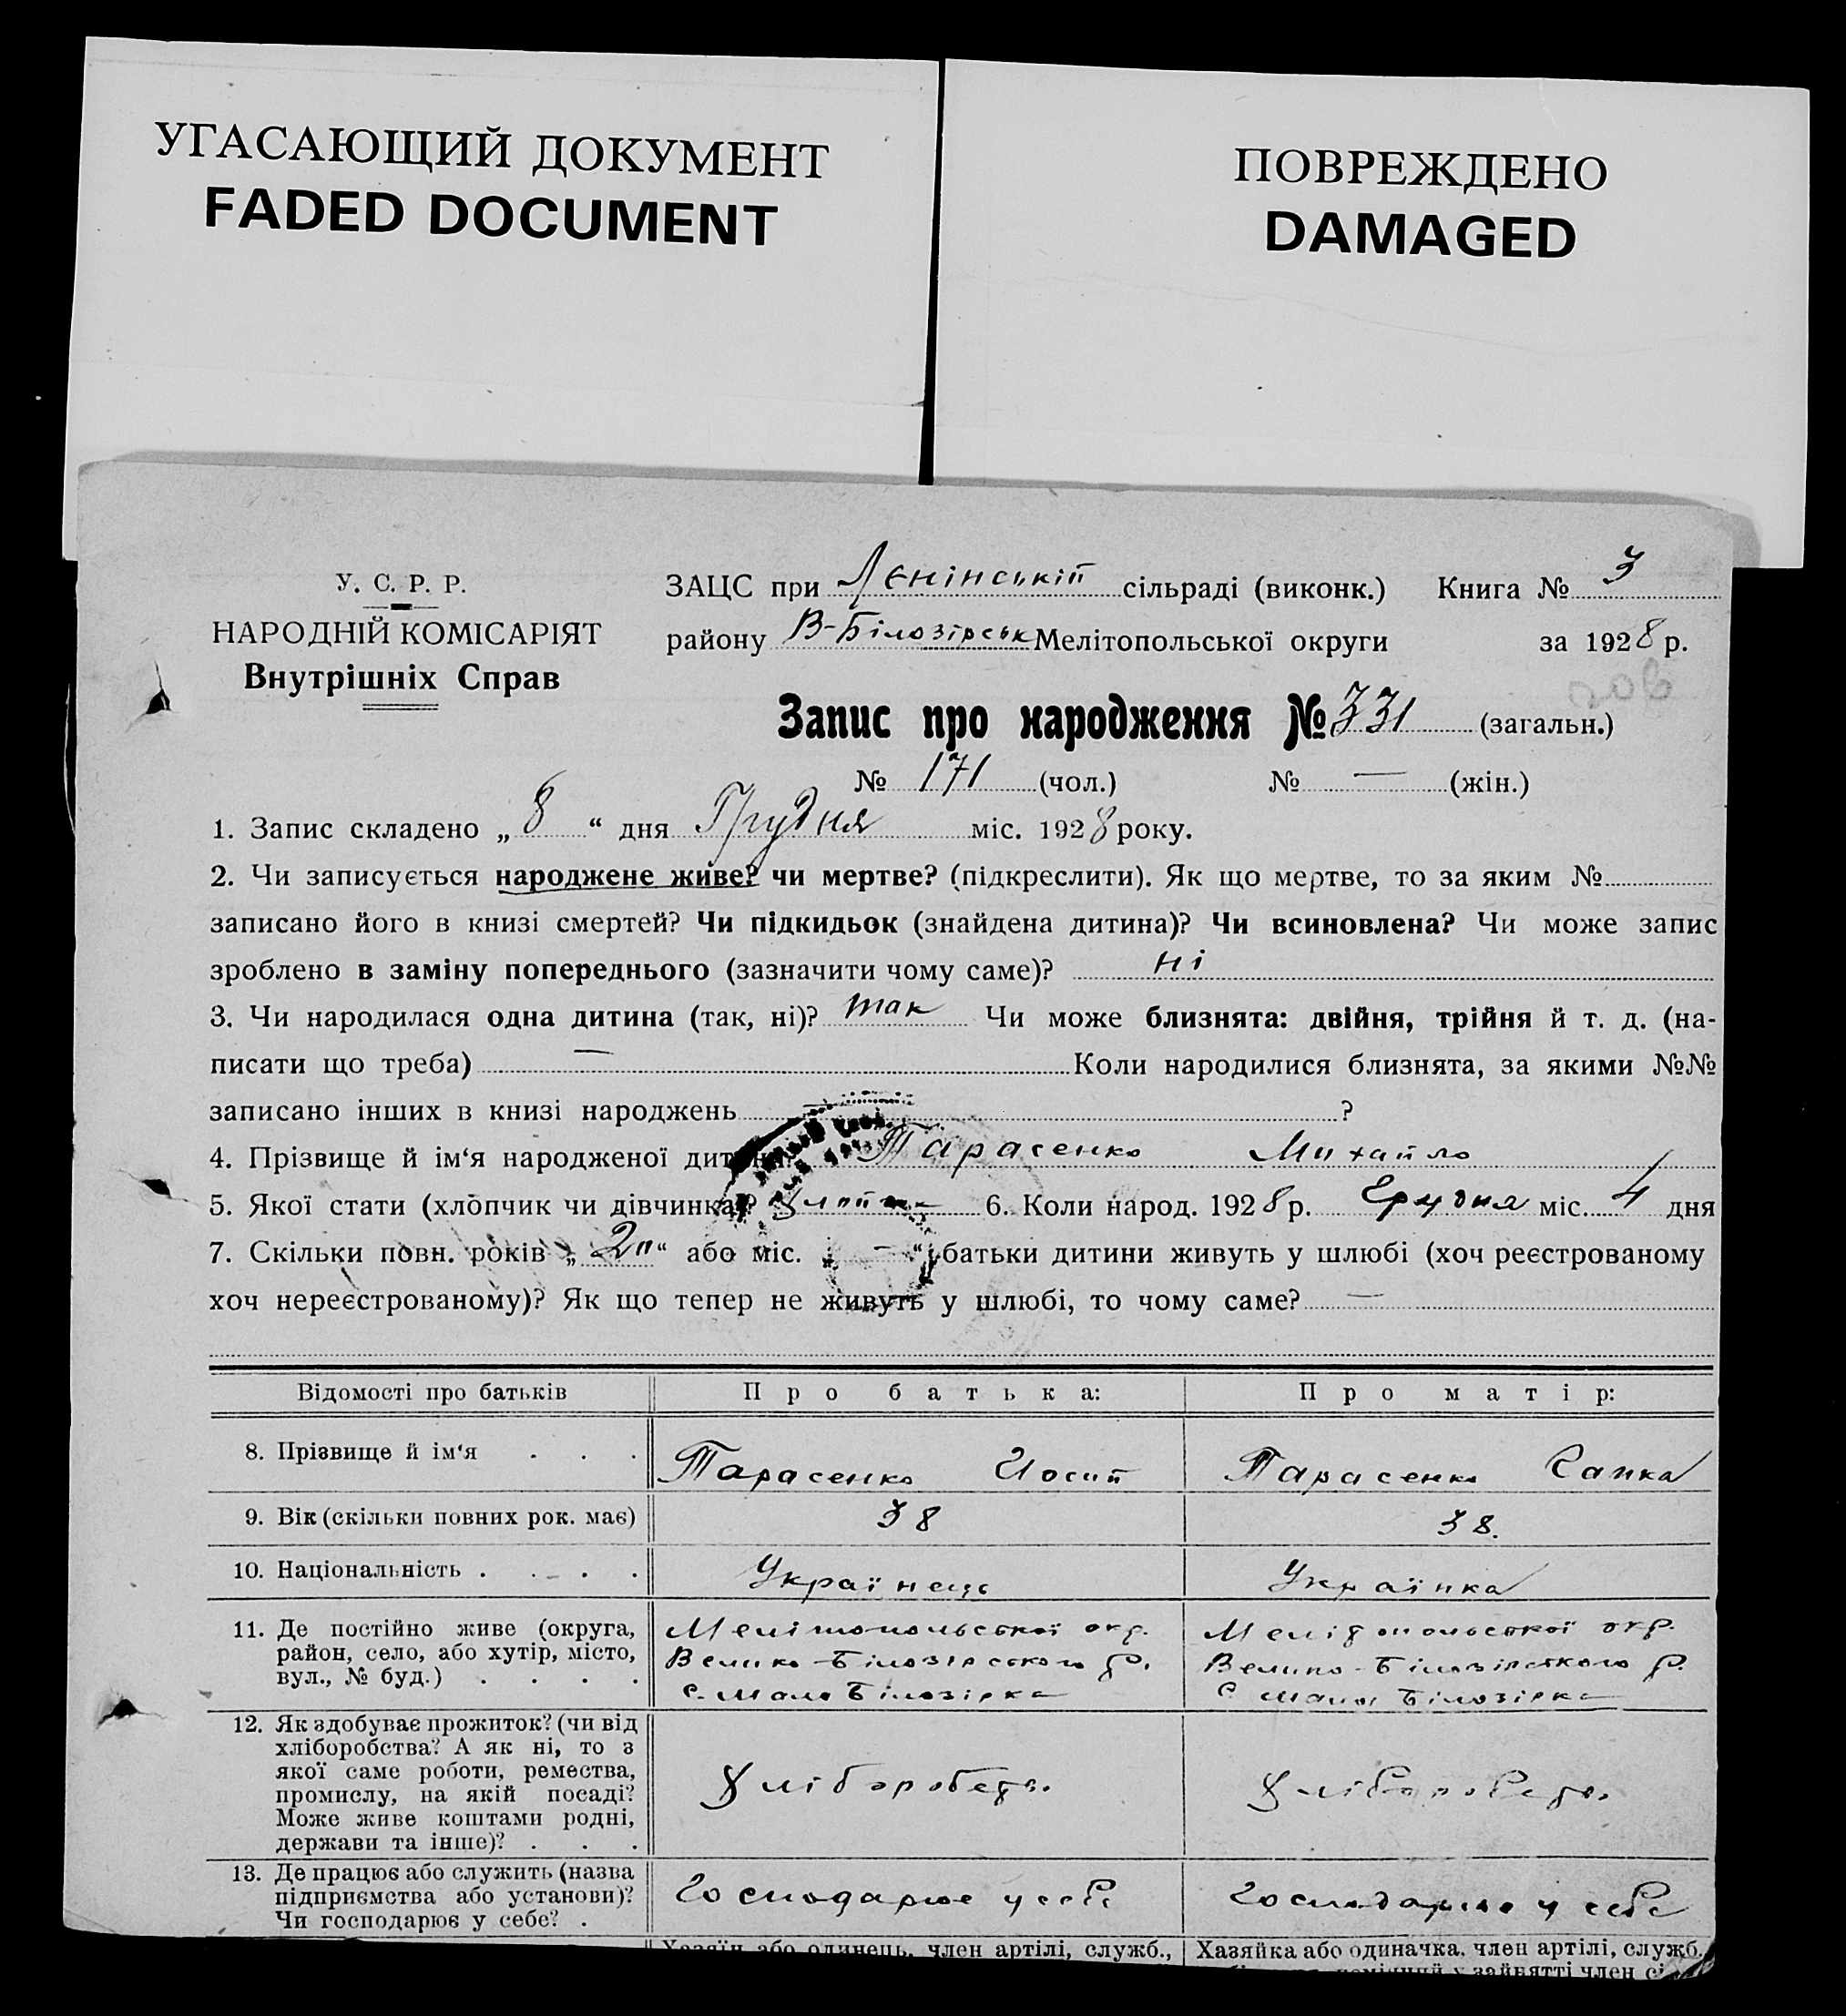 УГАСАЮЩИЙ ДОКУМЕНТ
FADED DOCUMENT
ПОВРЕЖДЕНО
DAMAGED
У. С. Р. Р.
НАРОДНІЙ КОМІСАРІЯТ
Внутрішніх Справ
ЗАЦС при Лєнінській сільраді (виконк.) Книга № 3
району В-Білозірськ Мелітопольської округи за 1928 р.
Запис про народження № 331 (загальн.)
№ 171 (чол.) № — (жін.)
1. Запис складено „ 8 “ дня Грудня міс. 1928 року.
2. Чи записується народжене живе? чи мертве? (підкреслити). Як що мертве, то за яким №
записано його в книзі смертей? Чи підкидьок (знайдена дитина)? Чи всиновлена? Чи може запис
зроблено в заміну попереднього (зазначити чому саме)? ні
3. Чи народилася одна дитина (так, ні)? так Чи може близнята: двійня, трійня й т. д. (на-
писати що треба) — Коли народилися близнята, за якими №№
записано інших в книзі народжень — ?
4. Прізвище й ім‘я народженої Тарасенко Михайло
5. Якої стати (хлопчик чи дівчинка)? 6. Коли народ. 1928 р. Грудня міс. 4 дня
7. Скільки повн. років „ 20 “ або міс. „ — “ батьки дитини живуть у шлюбі (хоч реєстрованому
хоч нереєстрованому)? Як що тепер не живуть у шлюбі, то чому саме? —
Відомості про батьків Про батька: Про матір:
8. Прізвище й ім‘я . . . Тарасенко Йосип Тарасенко Гапка
9. Вік (скільки повних рок. має) 38 38.
10. Національність . . . . Українець Українка
11. Де постійно живе (округа, район, село, або хутір, місто, вул., № буд.) . . . .
Мелітопольської окр.
Велико-Білозірського р.
с. Мала Білозірка
Мелітопольської окр.
Велико-Білозірського р.
с. Мала Білозірка
12. Як здобуває прожиток? (чи від хліборобства? А як ні, то з якої саме роботи, ремества, промислу, на якій посаді? Може живе коштами родні, держави та інше)? . . .
Хліборобств.
Хліборобств.
13. Де працює або служить (назва підприємства або установи)? Чи господарює у себе? .
Господарює у себе
Господарює у себе
Хазяїн або одинець, член артілі, служб.,
Хазяйка або одиначка, член артілі, служб.